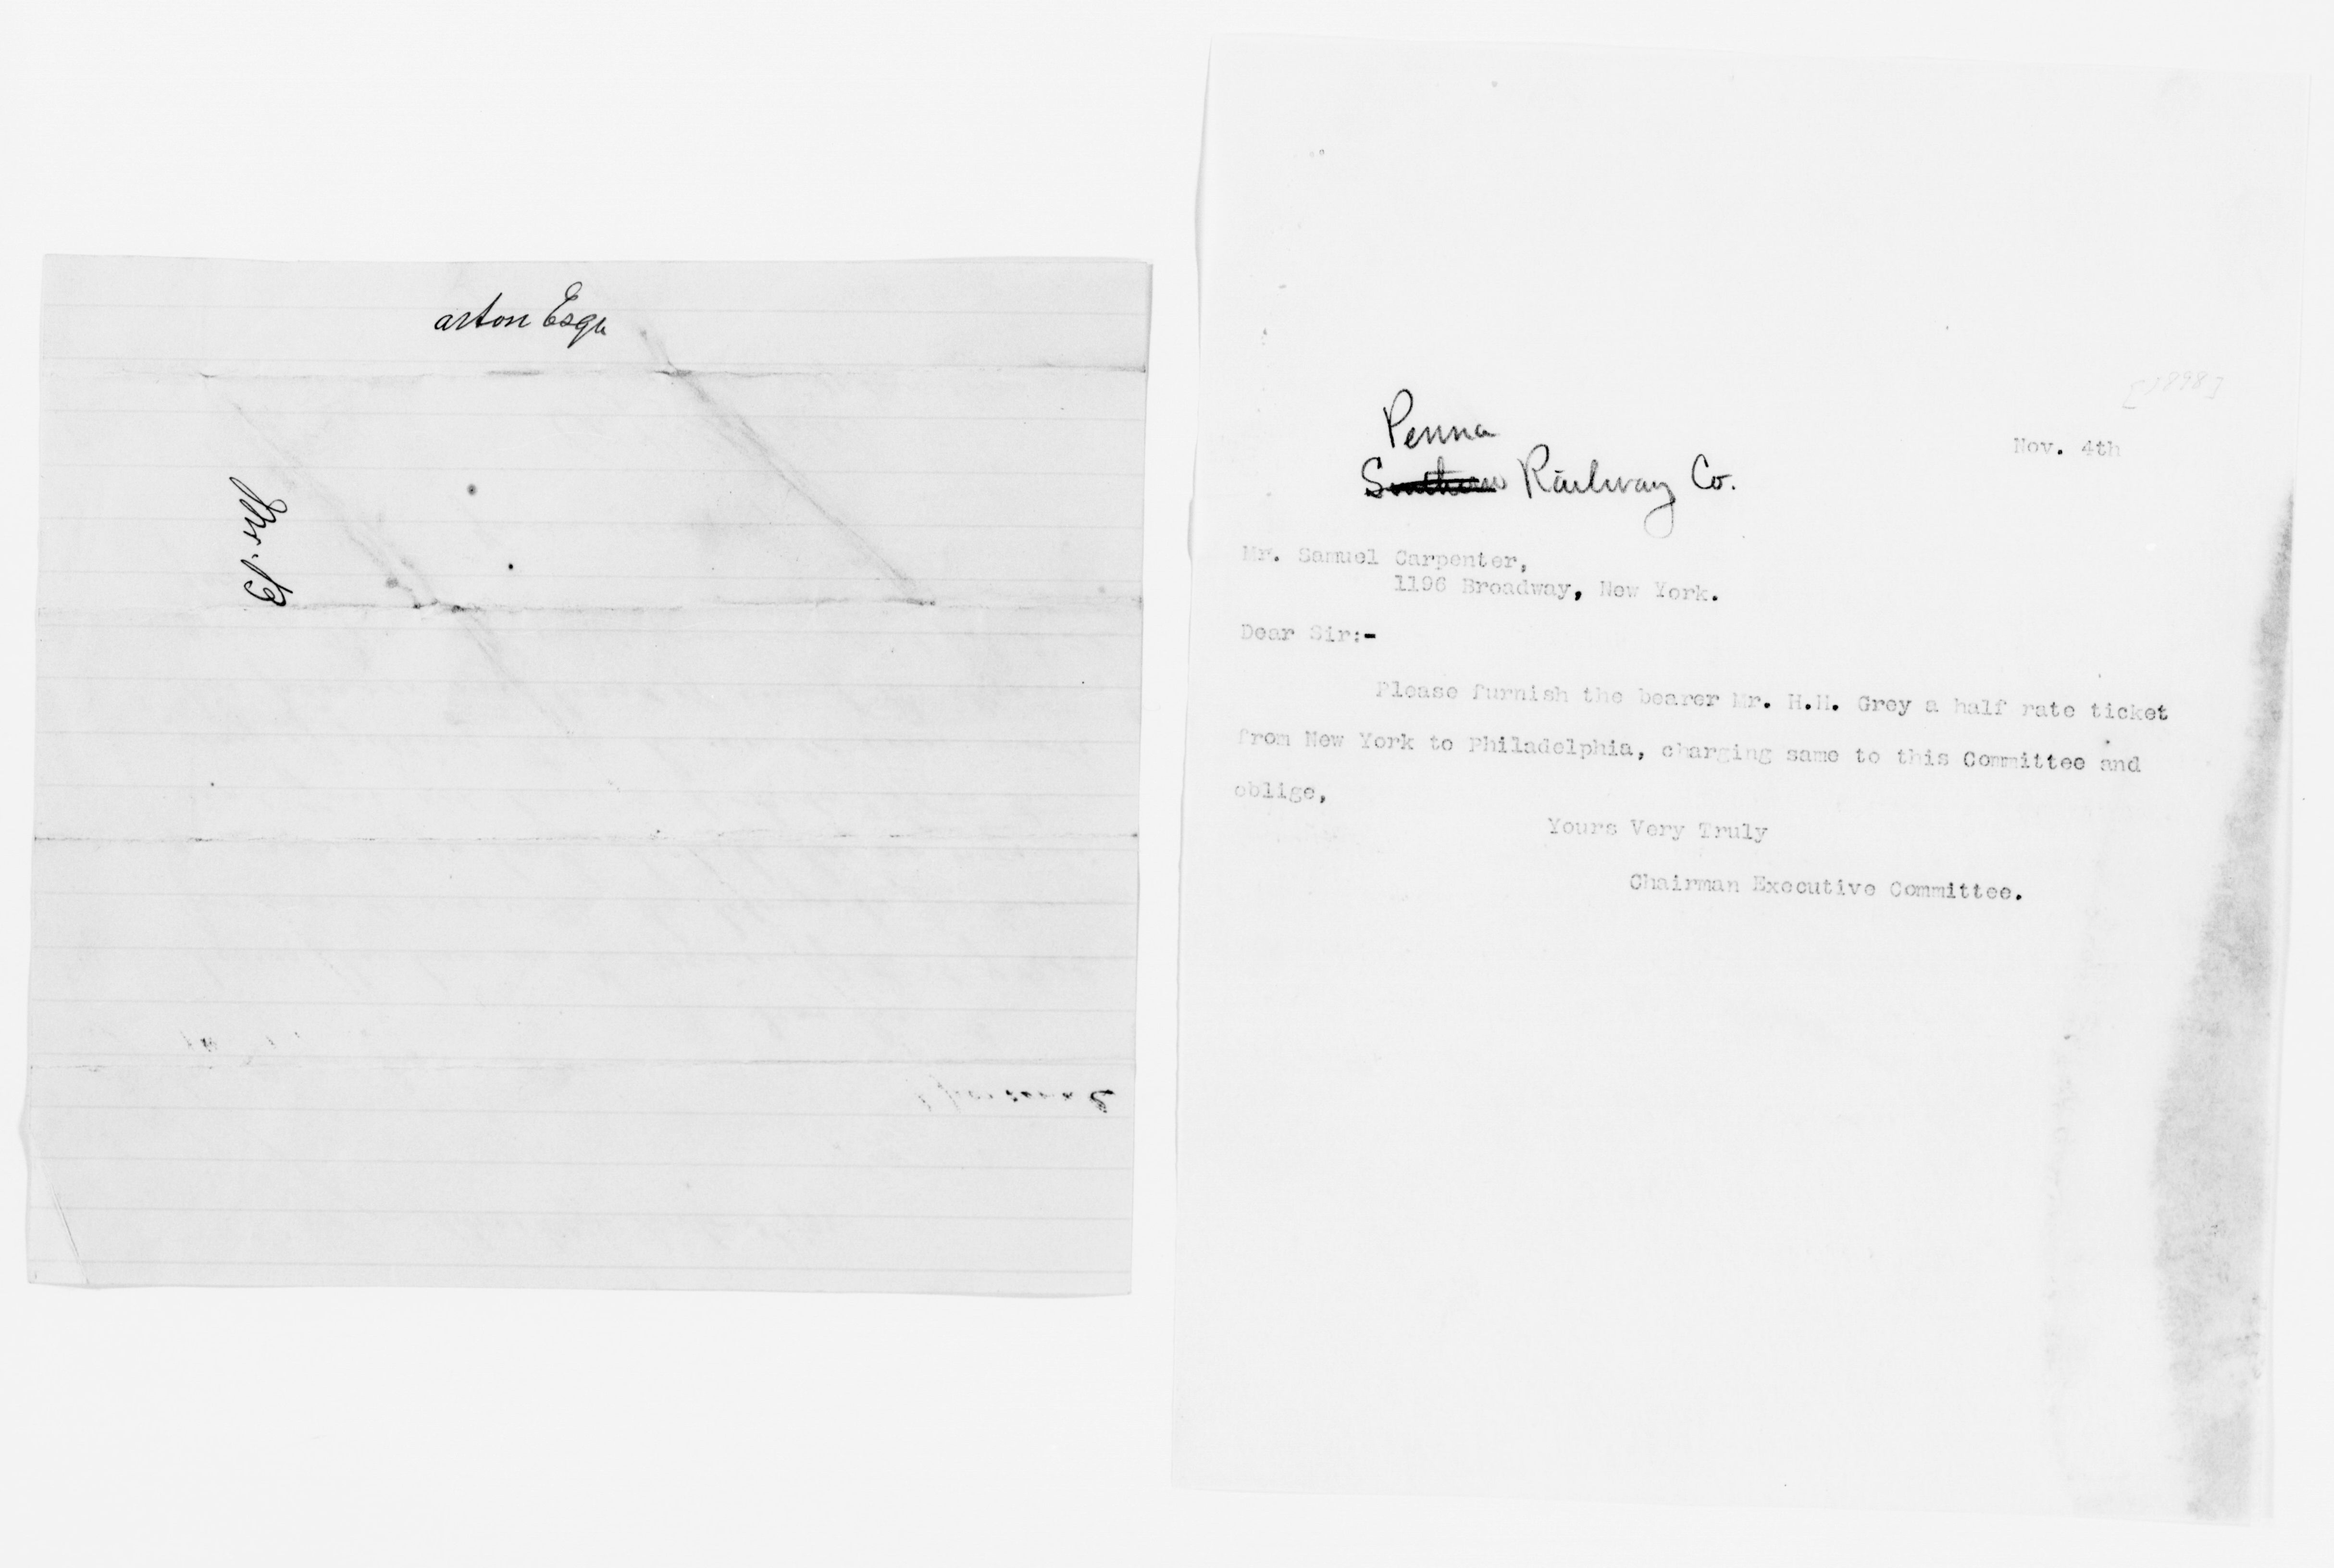 arton Esqr
Mr. B
[1898]
Nov. 4th
Penna
Southern Railway Co.
Mr. Samuel Carpenter,
1196 Broadway, New York.
Dear Sir:-
Please furnish the bearer Mr. H.H. Grey a half rate ticket
from New York to Philadelphia, charging same to this Committee and
oblige,
Yours Very Truly
Chairman Executive Committee.